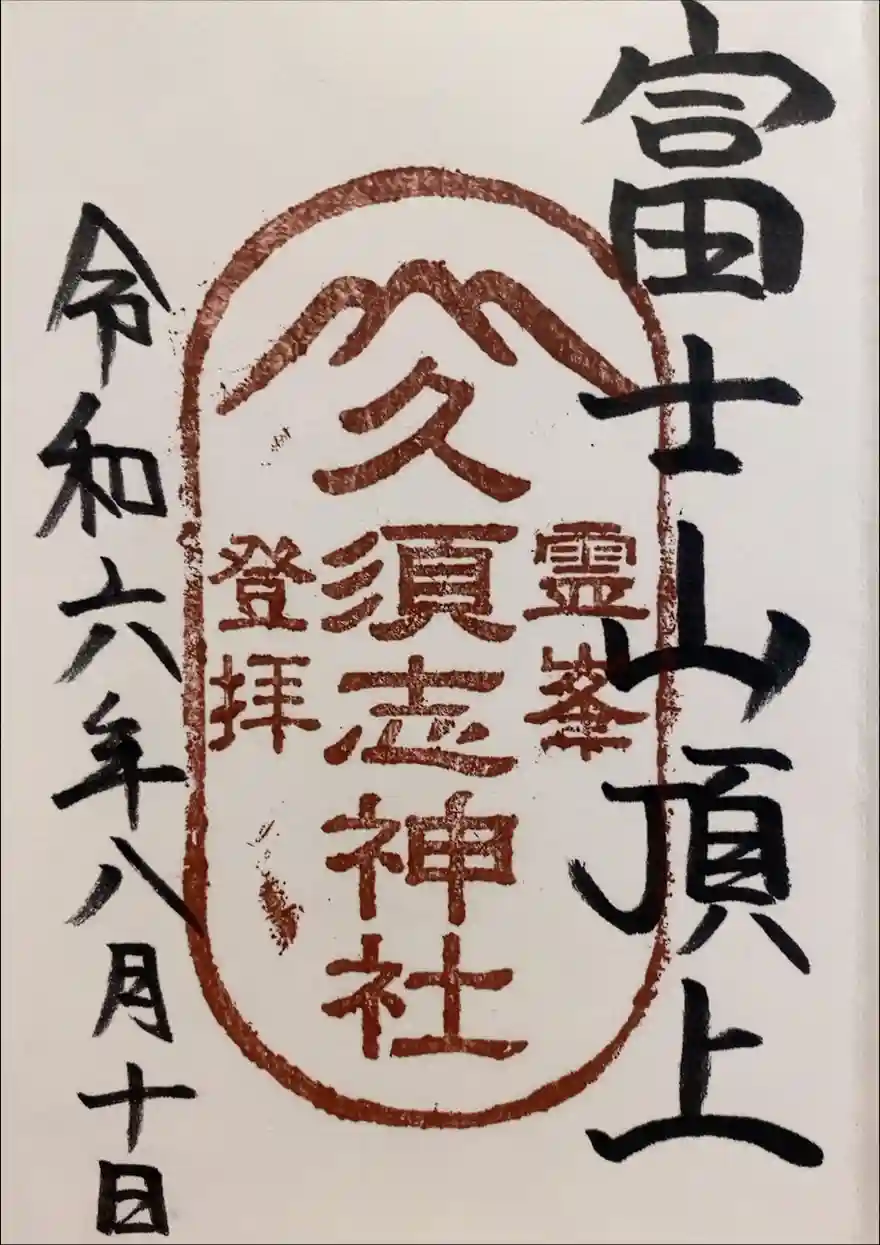 富士山頂上
霊峯
久須志神社
登拝
令和六年八月十日